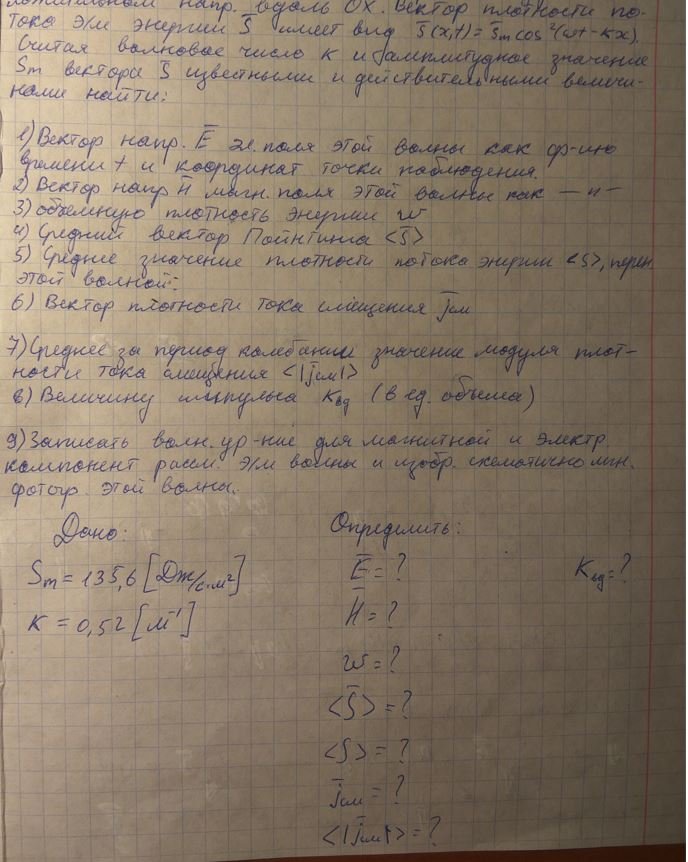 ложительном напр. вдоль OX. Вектор плотности по-
тока Э/м энергии S̄ имеет вид S̄(x,t) = S̄m cos²(ωt - kx).
Считая волновое число K и амплитудное значение
Sm вектора S̄ известными и действительными величи-
нами найти:
1) Вектор напр. Ē эл. поля этой волны как ф-ию
времени t и координат точки наблюдения.
2) Вектор напр H̄ магн. поля этой волны как — н —
3) Объемную плотность энергии w
4) Средний вектор Пойнтинга <S̄>
5) Среднее значение плотности потока энергии <S>, перен.
этой волной:
6) Вектор плотности тока смещения j̄см
7) Среднее за период колебании значение модуля плот-
ности тока смещения <|j̄см|>
8) Величину импульса Kед (в ед. объема)
9) Записать волн. ур-ние для магнитной и электр.
компонент рассм. Э/м волны и изобр. схематично мгн.
фотогр. этой волны.
Дано: Определить:
Sm = 135,6 [Дж/с·м²] Ē = ? Kед = ?
K = 0,52 [м⁻¹] H̄ = ?
w = ?
<S̄> = ?
<S> = ?
j̄см = ?
<|j̄см|> = ?